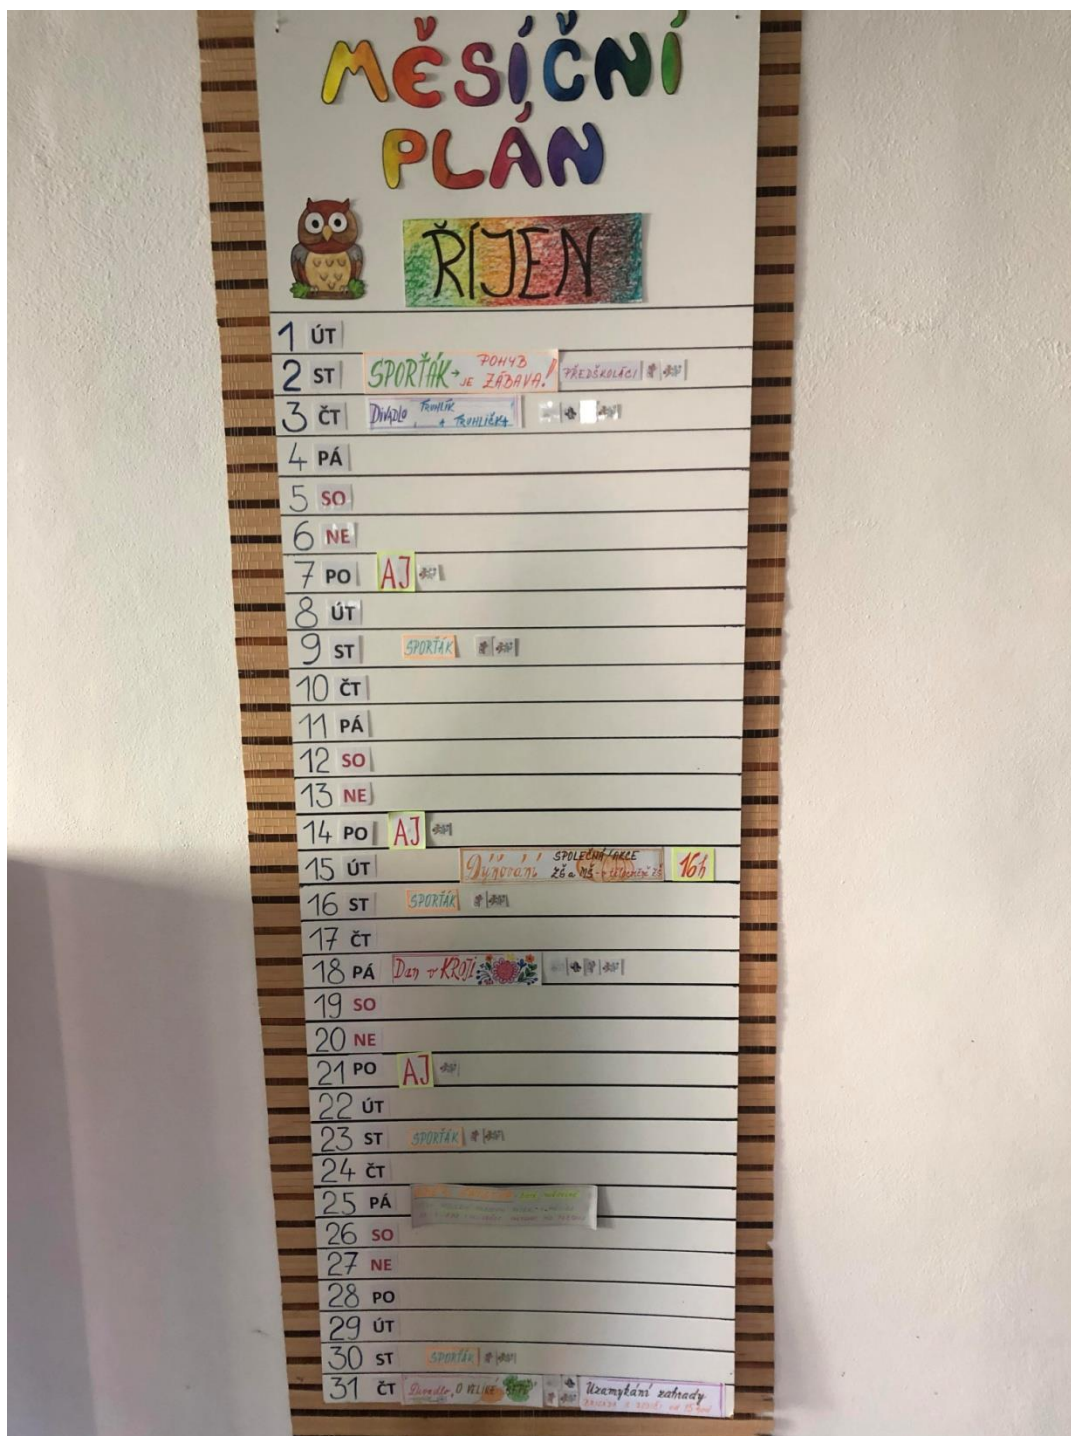 MĚSÍČNÍ
PLÁN
ŘÍJEN
1 ÚT
2 ST SPORŤÁK → POHYB JE ZÁBAVA! PŘEDŠKOLÁCI
3 ČT Divadlo TRUHLÍK + TRUHLIČKA
4 PÁ
5 SO
6 NE
7 PO AJ
8 ÚT
9 ST SPORŤÁK
10 ČT
11 PÁ
12 SO
13 NE
14 PO AJ
15 ÚT Dýňování SPOLEČNÁ AKCE ZŠ a MŠ 16h
16 ST SPORŤÁK
17 ČT
18 PÁ Den v KROJI
19 SO
20 NE
21 PO AJ
22 ÚT
23 ST SPORŤÁK
24 ČT
25 PÁ
26 SO
27 NE
28 PO
29 ÚT
30 ST SPORŤÁK
31 ČT Divadlo „O VELIKÉ Uzamykání zahrady